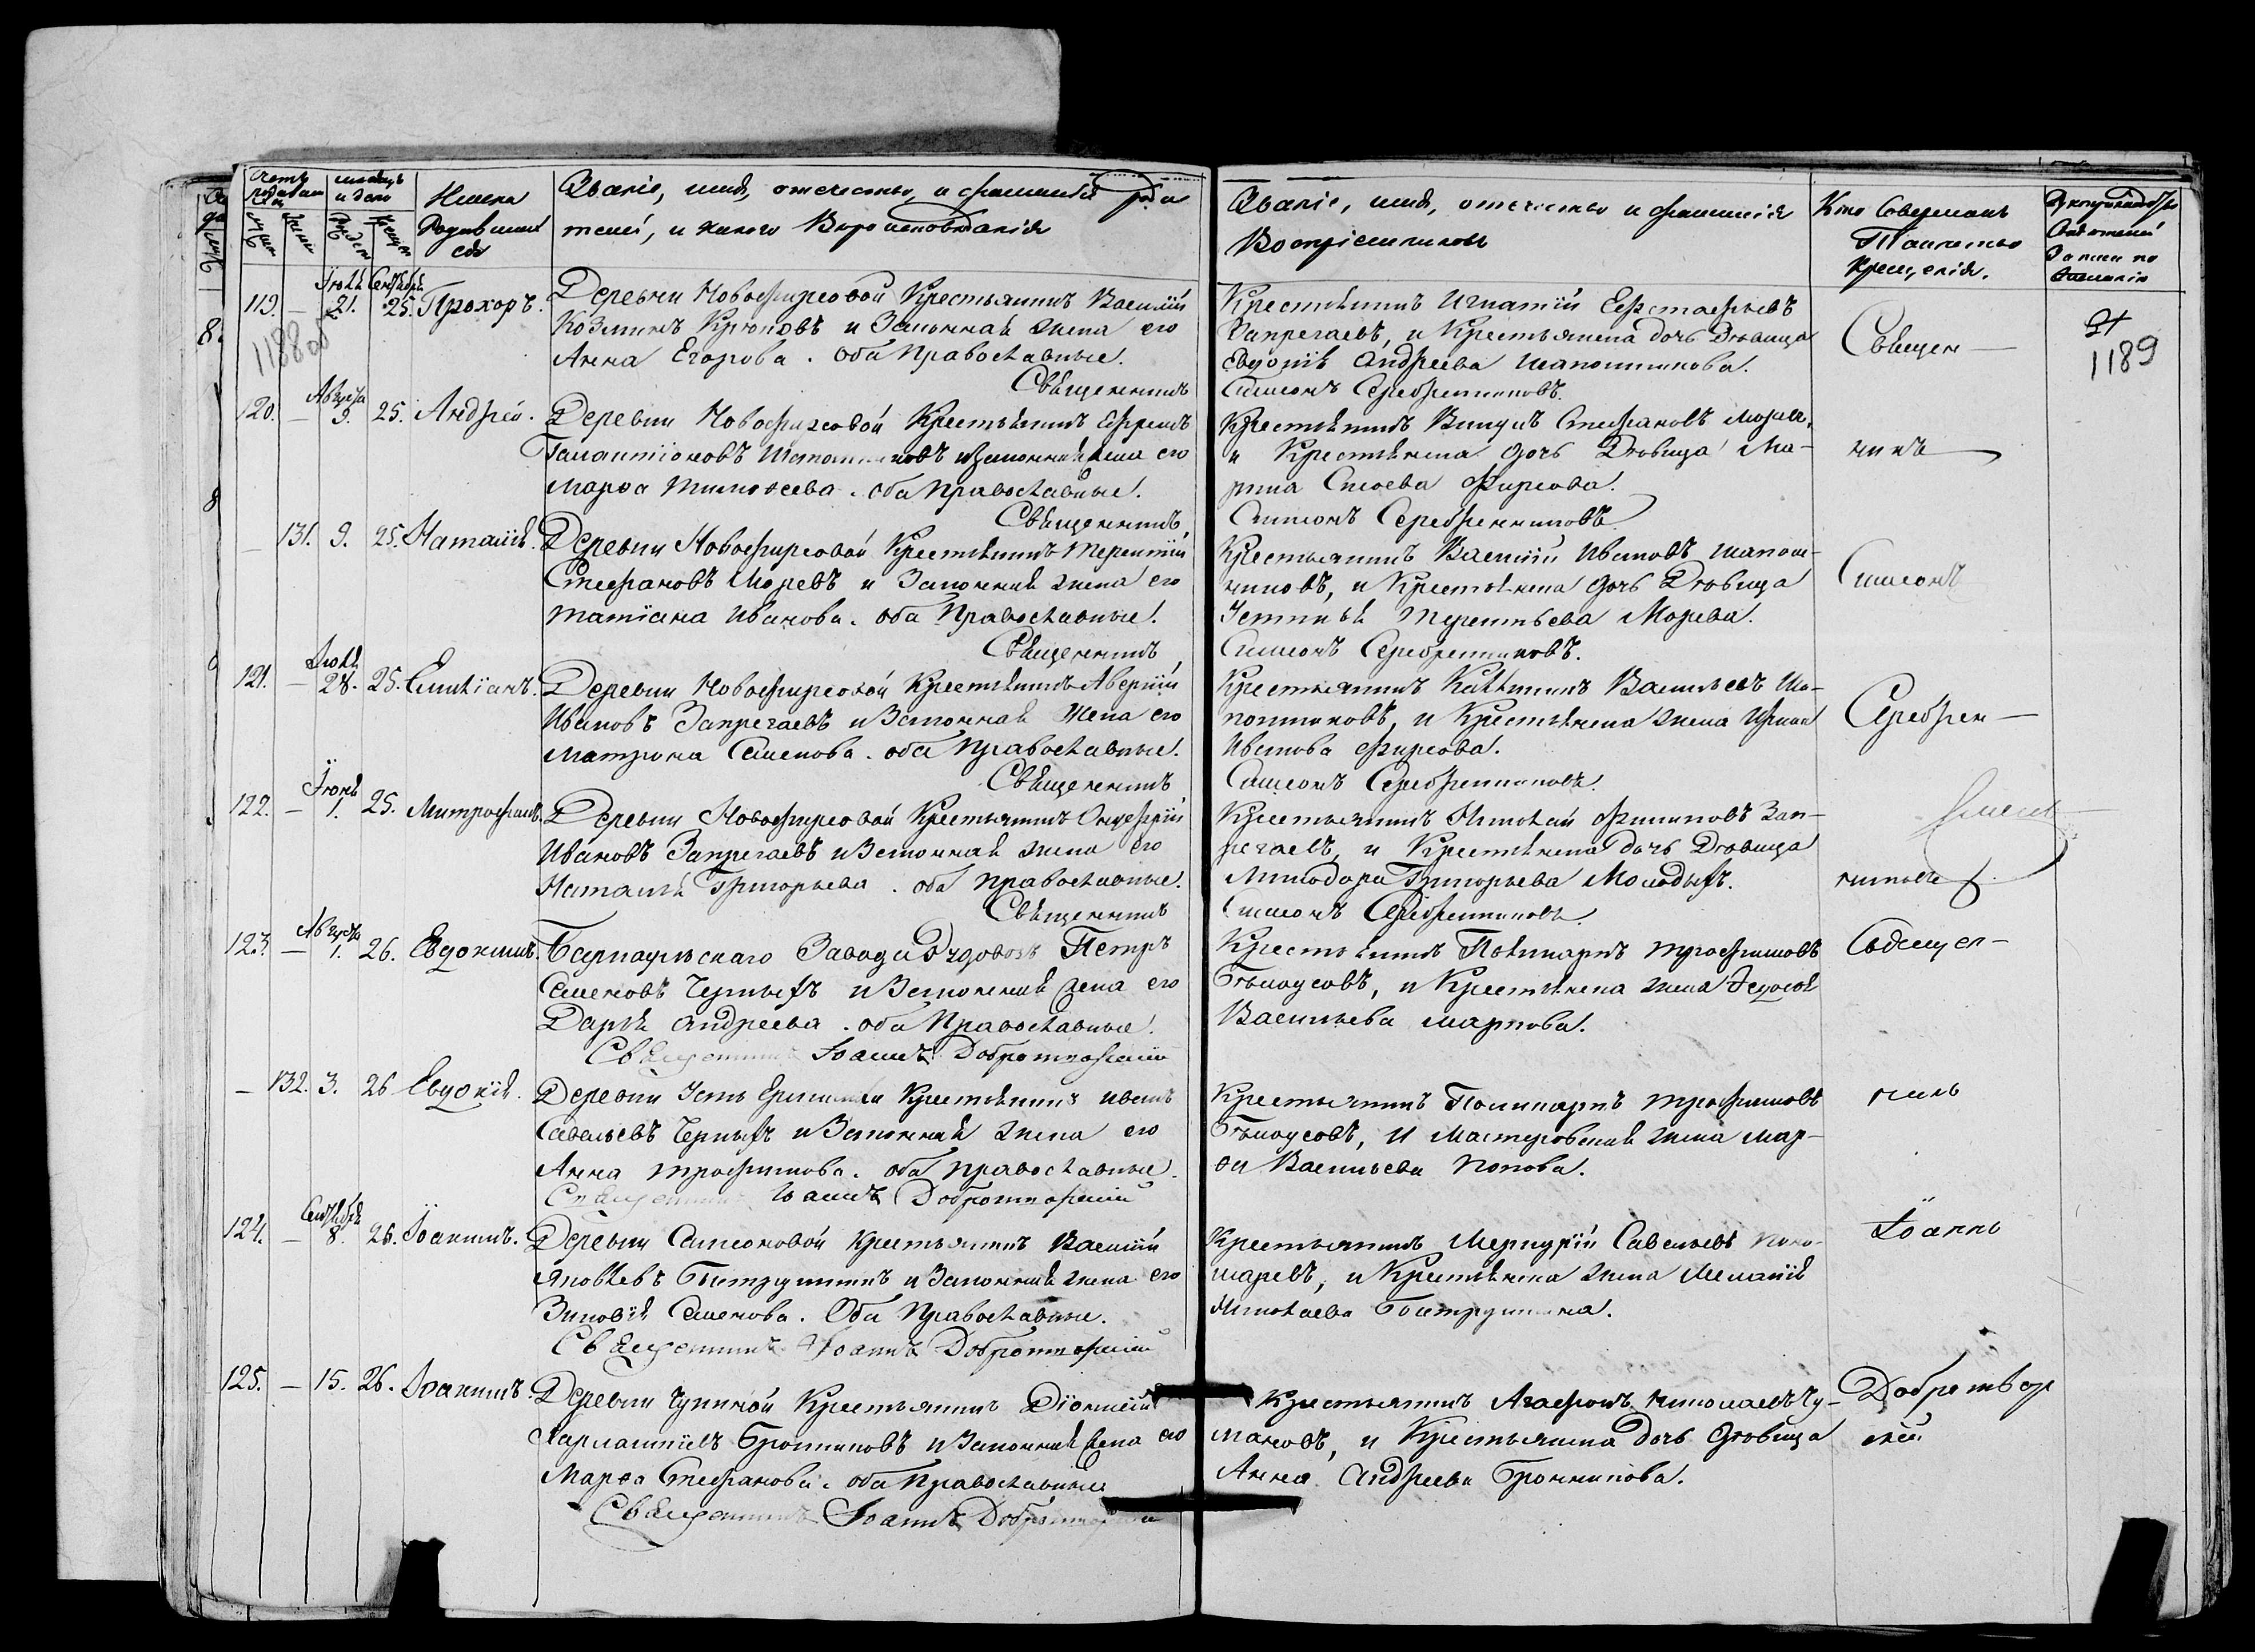 Счетъ родившихся
мѣсяцъ и день
Имена Родившихся
Званіе, имя, отечество, и фамилія роди
телей, и какого Вероисповѣданія
Званіе, имя, отечество и фамилія
Воспріемниковъ
Кто Совершалъ
Таинство
Крещенія.
119. — Іюля 21. Сентября 25. Прохоръ.
Деревни Новофирсовой Крестьянинъ Василій
Козминъ Крюковъ и Законная жена его
Анна Егорова. Оба Православные.
Священникъ
Крестьянинъ Игнатій Евстафьевъ
Запрегаевъ, и Крестьянска дочь Дѣвица
Евдокія Андреева Шапошникова.
Симеонъ Серебренниковъ.
Священ—
1188 об
1189
120. — Августа 9. 25. Андрей.
Деревни Новофирсовой Крестьянинъ Ефремъ
Галактіоновъ Шапошниковъ и Законная жена его
Марѳа Тимоѳеева. Оба Православные.
Священникъ
Крестьянинъ Викулъ Стефановъ
и Крестьянска дочь Дѣвица Ма-
рина Сысоева Фирсова.
Симеонъ Серебренниковъ
никъ
— 131. 9. 25. Наталія.
Деревни Новофирсовой Крестьянинъ Терентій
Стефановъ Моревъ и Законная жена его
Татіана Иванова. оба Православные.
Священникъ
Крестьянинъ Василій Ивановъ Шапош-
никовъ, и Крестьянска дочь Дѣвица
Устинья Терентьева Морева.
Симеонъ Серебренниковъ.
Симеонъ
121. — Іюля 28. 25. Емиліанъ.
Деревни Новофирсовой Крестьянинъ Аверкій
Ивановъ Запрегаевъ и Законная Жена его
Матрона Семенова. оба Православные.
Священникъ
Крестьянинъ Каллиникъ Васильевъ Ша-
пошниковъ, и Крестьянска жена
Иванова Фирсова.
Симеонъ Серебренниковъ.
Серебрен—
122. — Іюня 1. 25. Митрофанъ.
Деревни Новофирсовой Крестьянинъ Онуфрій
Ивановъ Запрегаевъ и Законная жена его
Наталія Григорьева. оба Православные.
Священникъ
Крестьянинъ Николай Филиповъ Зап-
регаевъ, и Крестьянска дочь Дѣвица
Минодора Григорьева Молодыхъ.
Симеонъ Серебренниковъ
никовъ
123. — Августа 1. 26. Евдокимъ.
Барнаульскаго Завода Рудовозъ Петръ
Семеновъ Черныхъ и Законная жена его
Дарія Андреева. оба Православные.
Священникъ Іоаннъ Добротворскій
Крестьянинъ Поликарпъ Трофимовъ
Бѣлоусовъ, и Крестьянска жена Ѳедосія
Васильева Маркова.
Священ—
— 132. 3. 26 Евдокія.
Деревни Усть Крестьянинъ Иванъ
Савельевъ Черныхъ и Законная жена его
Анна Трофимова. оба Православные.
Священникъ Іоаннъ Добротворскій
Крестьянинъ Поликарпъ Трофимовъ
Бѣлоусовъ, и Мастеровская жена Мар-
ѳа Васильева Попова.
никъ
124. — Сентября 8. 26. Іоакимъ.
Деревни Самсоновой Крестьянинъ Василій
Яковлевъ и Законная жена его
Зиновія Семенова. Оба Православные.
Священникъ Іоаннъ Добротворскій
Крестьянинъ Меркурій Савельевъ Поно-
маревъ, и Крестьянска жена Меланія
Николаева
Іоаннъ
125. — 15. 26. Іоакимъ.
Деревни Чупиной Крестьянинъ Діонисій
Харлампіевъ Бронниковъ и Законная жена его
Марѳа Стефанова. оба Православные
Священникъ Іоаннъ Добротворскій
Крестьянинъ Агафонъ Николаевъ Чу-
мановъ, и Крестьянска дочь Дѣвица
Анна Андреева Бронникова.
Добротвор
скій